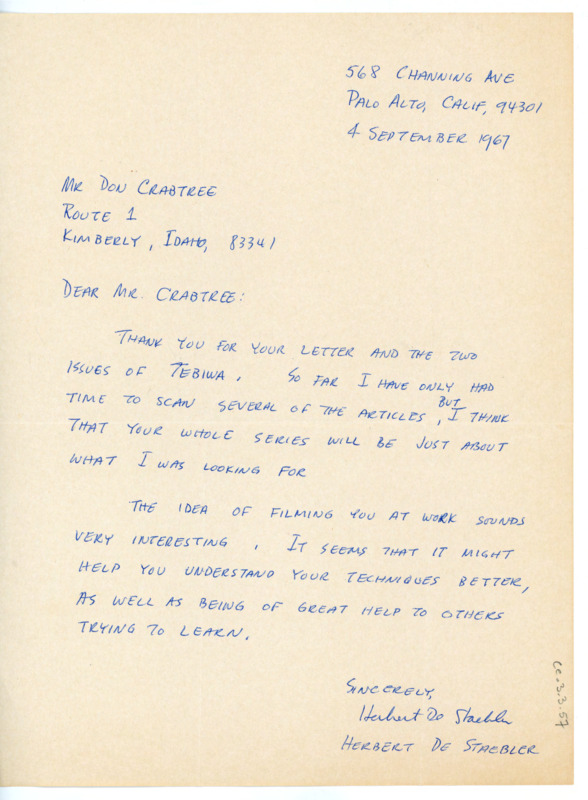 568 CHANNING AVE
PALO ALTO, CALIF, 94301
4 SEPTEMBER 1967
MR DON CRABTREE
ROUTE 1
KIMBERLY, IDAHO, 83341
DEAR MR. CRABTREE:
THANK YOU FOR YOUR LETTER AND THE TWO
ISSUES OF TEBIWA. SO FAR I HAVE ONLY HAD
TIME TO SCAN SEVERAL OF THE ARTICLES, BUT I THINK
THAT YOUR WHOLE SERIES WILL BE JUST ABOUT
WHAT I WAS LOOKING FOR
THE IDEA OF FILMING YOU AT WORK SOUNDS
VERY INTERESTING. IT SEEMS THAT IT MIGHT
HELP YOU UNDERSTAND YOUR TECHNIQUES BETTER,
AS WELL AS BEING OF GREAT HELP TO OTHERS
TRYING TO LEARN.
SINCERELY,
Herbert De Staebler
HERBERT DE STAEBLER
CC-3.3.57